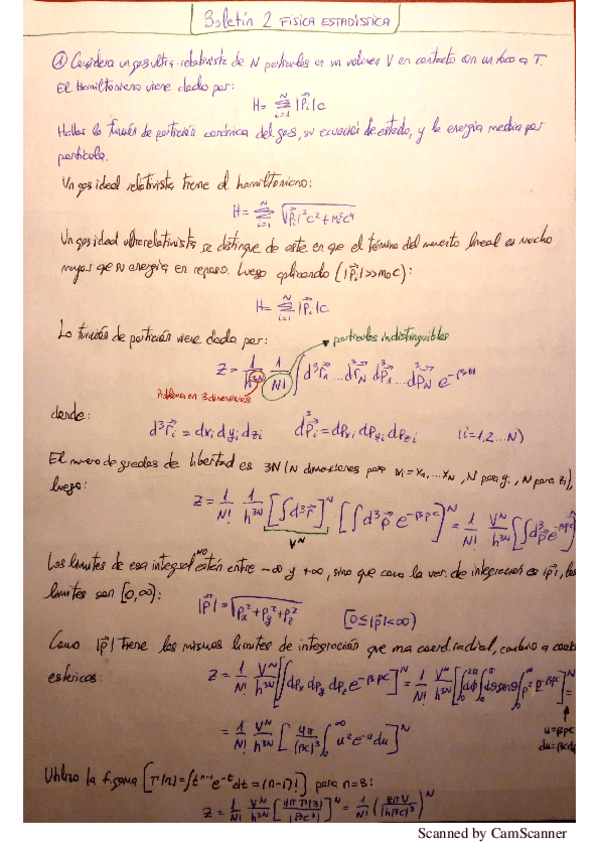 Boletín 2 FÍSICA ESTADÍSTICA
① Considera un gas ultra-relativista de N partículas en un volumen V en contacto con un foco a T.
El Hamiltoniano viene dado por:
H = Σ_{i=1}^{N} |p⃗_i| c
Hallar la función de partición canónica del gas, su ecuación de estado, y la energía media por
partícula.
Un gas ideal relativista tiene el hamiltoniano:
H = Σ_{i=1}^{N} √(|p⃗_i|²c² + m₀²c⁴)
Un gas ideal ultrarelativista se distingue de este en que el término del momento lineal es mucho
mayor que su energía en reposo. Luego aplicando (|p⃗_i| >> m₀c):
H = Σ_{i=1}^{N} |p⃗_i| c
La función de partición viene dada por:
partículas indistinguibles
Z = 1/h^{3N} 1/N! ∫ d³r⃗_1 ... d³r⃗_N d³p⃗_1 ... d³p⃗_N e^{-βH}
Problema en 3 dimensiones
donde:
d³r⃗_i = dx_i dy_i dz_i d³p⃗_i = dp_{xi} dp_{yi} dp_{zi} (i=1,2...N)
El número de grados de libertad es 3N (N dimensiones para x_i = x_1, ... x_N, N para y_i, N para z_i),
luego:
Z = 1/N! 1/h^{3N} [∫d³r⃗]^N [∫d³p⃗ e^{-βpc}]^N = 1/N! V^N/h^{3N} [∫d³p⃗ e^{-βpc}]
V^N
Los límites de esa integral no están entre -∞ y +∞, sino que como la var. de integración es |p⃗|, los
límites son [0,∞):
|p⃗| = √(p_x² + p_y² + p_z²) [0 ≤ |p⃗| < ∞)
Como |p⃗| tiene los mismos límites de integración que una coord. radial, cambio a
esféricas:
Z = 1/N! V^N/h^{3N} [∫∫ dp_x dp_y dp_z e^{-βpc}]^N = 1/N! V^N/h^{3N} [∫_0^{2π} dφ ∫_0^π dθ senθ ∫_0^∞ p² e^{-βpc}]^N =
u = βpc
= 1/N! V^N/h^{3N} [4π/(βc)³ ∫_0^∞ u² e^{-u} du]^N
Utilizo la [Γ(n) = ∫t^{n-1} e^{-t} dt = (n-1)!] para n=3:
Z = 1/N! V^N/h^{3N} [4π Γ(3)/(βc)³]^N = 1/N! (8πV/(hβc)³)^N
Scanned by CamScanner